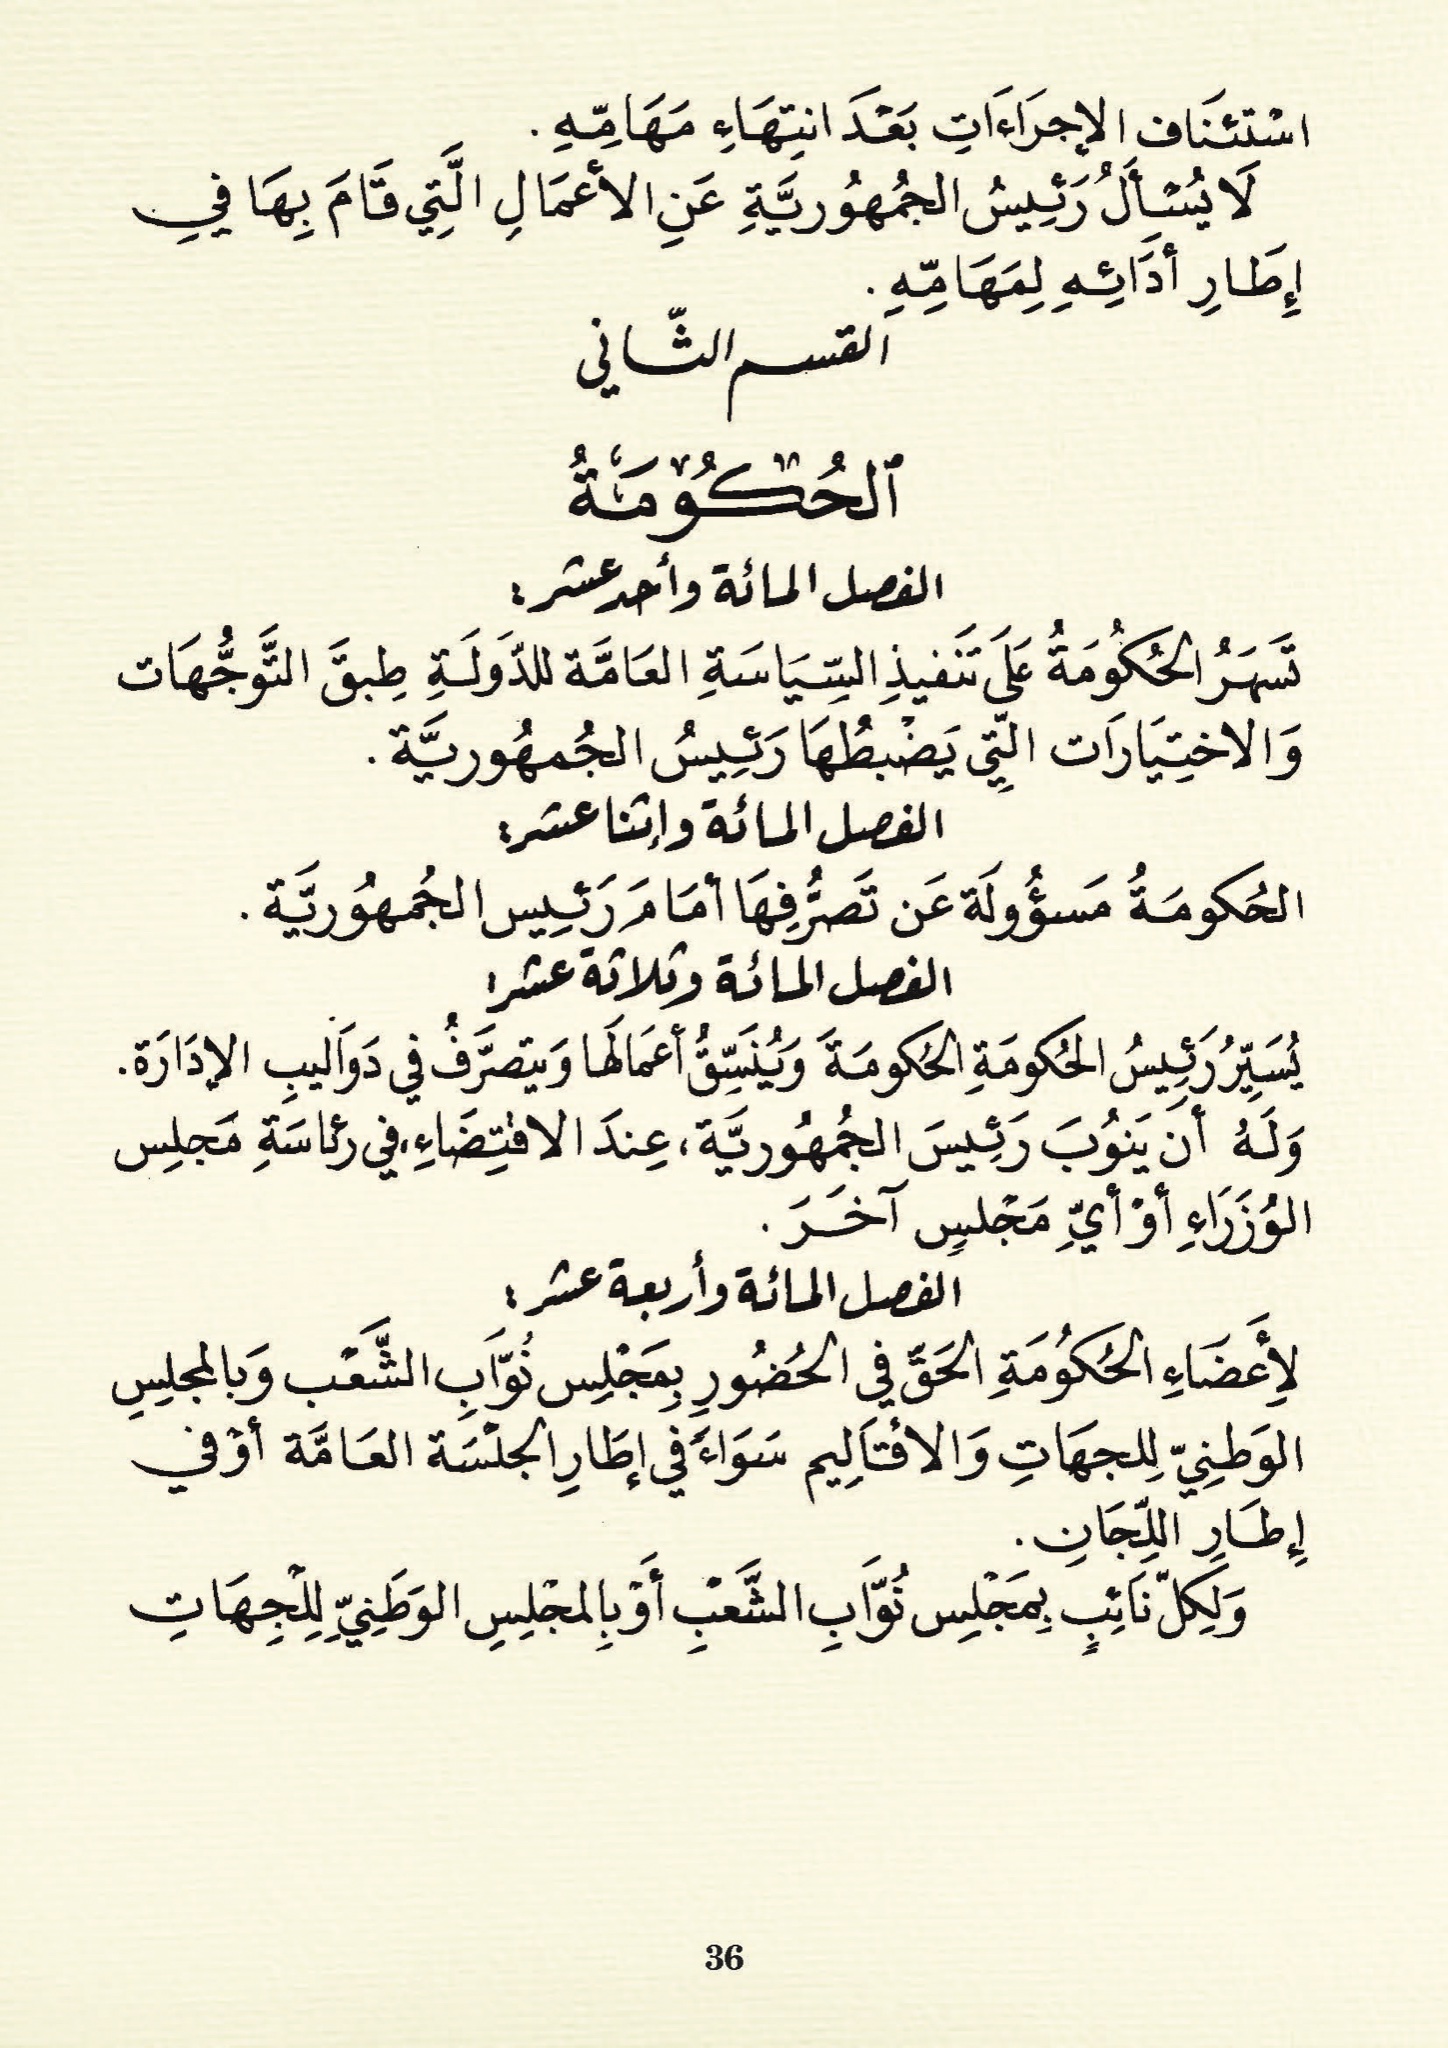 اسْتئنَاف الإجرَاءَاتِ بَعْدَ انتِهَاءِ مَهَامِّهِ .
لَا يُسْأَلُ رَئِيسُ الجُمهُوريَّةِ عَنِ الأعمَالِ الَّتِي قَامَ بِهَا فِي
إِطَارِ أدَائِهِ لِمَهَامِّهِ .
القسم الثّاني
ٱلحُكُومَةُ
الفصل المائة وأحد عشر :
تَسهَرُ الحُكُومَةُ عَلَى تَنفيذِ السِّيَاسَةِ العَامَّة للدَّولَةِ طِبقَ التَّوجُّهَات
وَالاختِيَارَات الّتِي يَضْبطُهَا رَئِيسُ الجُمهُوريَّة .
الفصل المائة وإثنا عشر :
الحُكومَةُ مَسؤُولَة عَن تَصرُّفِهَا أمَامَ رَئِيس الجُمهُوريَّة .
الفصل المائة وثلاثة عشر :
يُسَيِّرُ رَئِيسُ الحُكومَةِ الحُكومَةَ وَيُنَسِّقُ أعمَالَها وَيتصرَّفُ في دَوَاليبِ الإدَارَة .
وَلَهُ أن يَنوُبَ رَئِيسَ الجُمهُوريَّة ، عِندَ الاقتِضَاءِ ، في رئاسَةِ مَجلِس
الوُزَرَاءِ أوْ أيِّ مَجْلسٍ آخَرَ .
الفصل المائة وأربعة عشر :
لِأَعضَاءِ الحُكُومَةِ الحَقّ في الحُضُورِ بِمَجْلِس نُوَّابِ الشَّعْب وَبالمجلِسِ
الوَطنِيّ لِلجهَاتِ وَالاقْتَالِيم سَوَاءً في إطَارِ الجلْسَة العَامَّة أوْ في
إِطَارِ اللِّجَانِ .
وَلِكلّ نَائِبٍ بِمَجْلِس نُوَّابِ الشَّعْبِ أَوْ بِالمجْلِسِ الوَطَنِيِّ لِلْجِهَاتِ
36